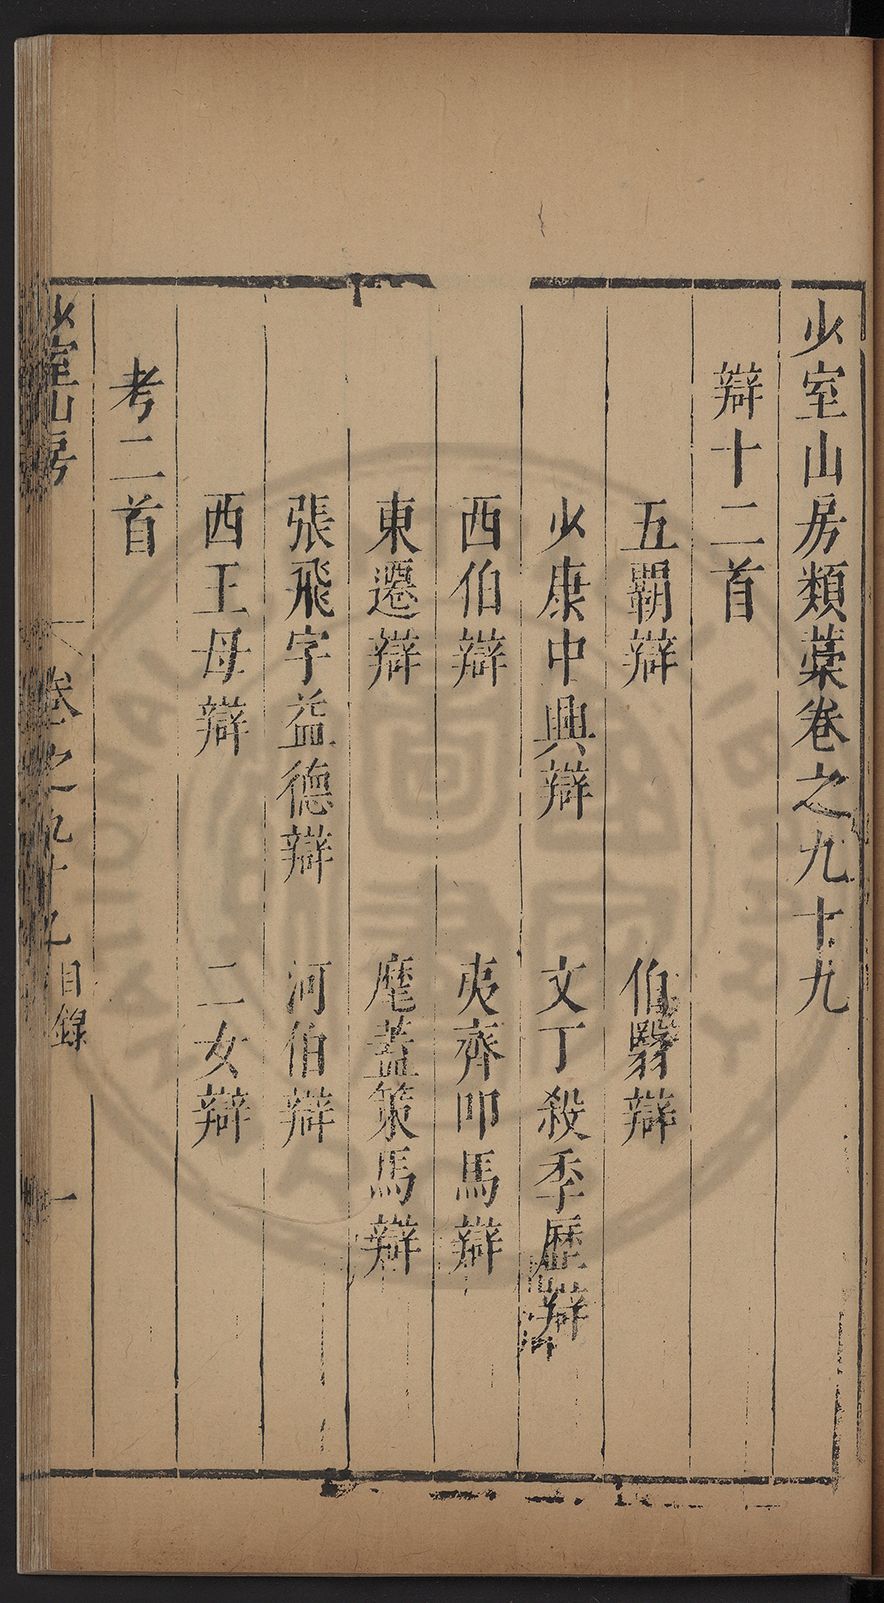 少室山房類藁卷之九十九
辯十二首
五覇辯 伯翳辯
少康中興辯 文丁殺季歷辯
西伯辯 夷齊叩馬辯
東遷辯 麾蓋策馬辯
張飛字益德辯 河伯辯
西王母辯 二女辯
考二首
少室山房 卷之九十九 目錄 一